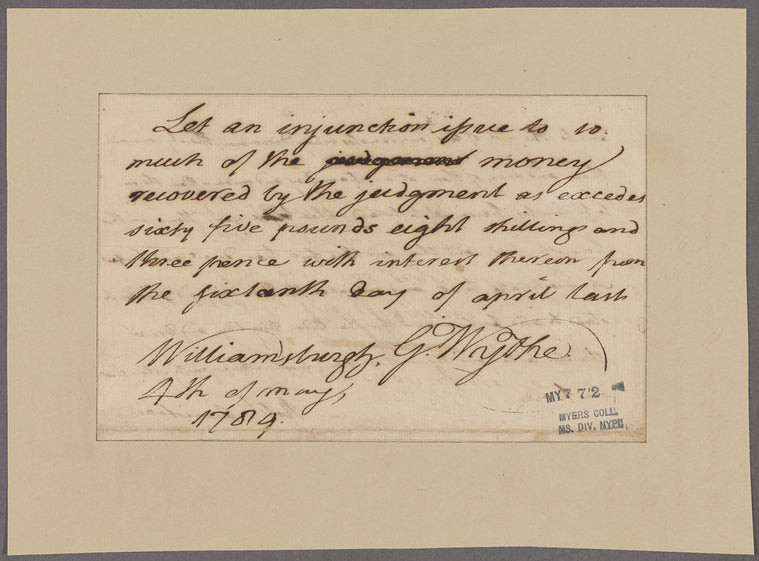 Let an injunction issue to so
much of the money
recovered by the judgment as excedes
sixty five pounds eight shillings and
three pence with interest thereon from
the sixteenth day of april last
Williamsburgh, G. Wythe.
4th of may,
1789.
MY 772
MYERS COLL.
MS. DIV. NYPL